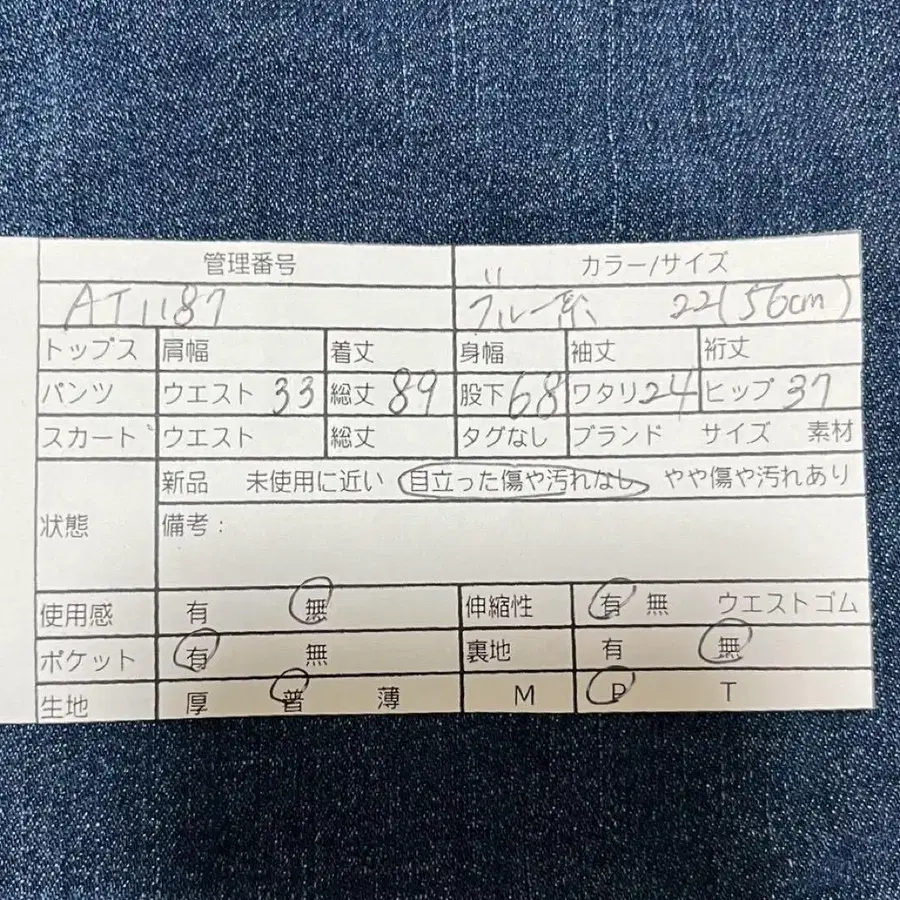 管理番号 カラー/サイズ
AT1187 ブルー系 22(56cm)
トップス 肩幅 着丈 身幅 袖丈 裄丈
パンツ ウエスト 33 総丈 89 股下 68 ワタリ 24 ヒップ 37
スカート ウエスト 総丈 タグなし ブランド サイズ 素材
状態 新品 未使用に近い 目立った傷や汚れなし やや傷や汚れあり
備考：
使用感 有 無 伸縮性 有 無 ウエストゴム
ポケット 有 無 裏地 有 無
生地 厚 普 薄 M P T